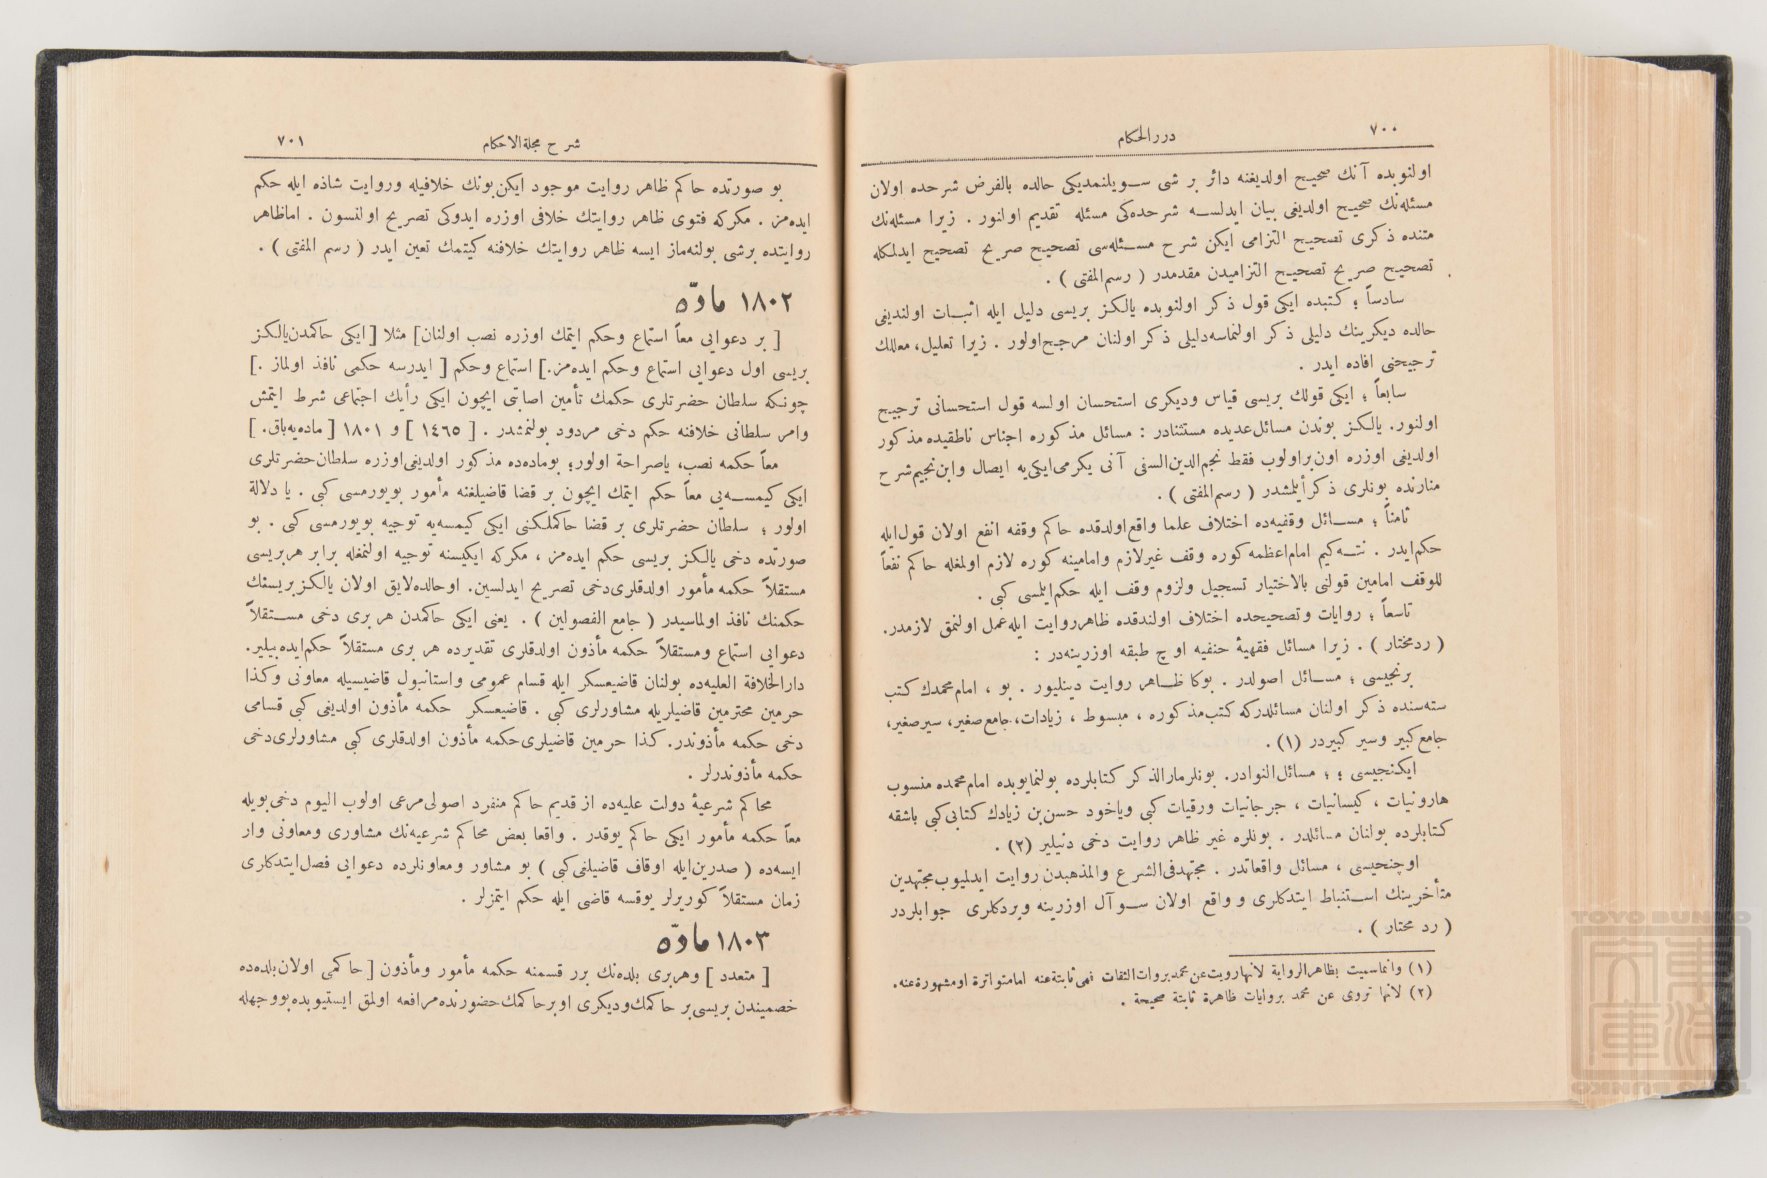 ٧٠٠
دررالحكام
اولنوبده آنك صحيح اولديغنه دائر بر شى سويلنمديكى حالده بالفرض شرحده اولان
مسئله‌نك صحيح اولديغى بيان ايدلسه شرحده‌كى مسئله تقديم اولنور . زيرا مسئله‌نك
متنده ذكرى تصحيح التزامى ايكن شرح مسئله‌سى تصحيح صريح تصحيح ايدلمكله
تصحيح صريح تصحيح التزاميدن مقدمدر ( رسم‌المفتى ) .
سادساً ؛ كتبده ايكى قول ذكر اولنوبده يالكز بريسى دليل ايله اثبات اولنديغى
حالده ديكرينك دليلى ذكر اولنماسه دليلى ذكر اولنان مرجح‌اولور . زيرا تعليل، معللك
ترجيحنى افاده ايدر .
سابعاً ؛ ايكى قولك بريسى قياس وديكرى استحسان اولسه قول استحسانى ترجيح
اولنور. يالكز بوندن مسائل‌عديده مستثنادر : مسائل مذكوره اجناس ناطقيده مذكور
اولديغى اوزره اون‌براولوب فقط نجم‌الدين‌النسفى آنى يكرمى‌ايكى‌يه ايصال وابن‌نجيم‌شرح
منارنده بونلرى ذكرأيلمشدر ( رسم‌المفتى ) .
ثامناً ؛ مسائل وقفيه‌ده اختلاف علما واقع‌اولدقده حاكم وقفه انفع اولان قول‌ايله
حكم‌ايدر . نته‌كيم امام‌اعظمه‌كوره وقف غيرلازم وامامينه كوره لازم اولمغله حاكم نفعاً
للوقف امامين قولنى بالاختيار تسجيل ولزوم وقف ايله حكم‌ايلمسى كبى .
تاسعاً ؛ روايات وتصحيحده اختلاف اولندقده ظاهرروايت ايله‌عمل اولنمق لازمدر.
( ردمختار ) . زيرا مسائل فقهيهٔ حنفيه اوچ طبقه اوزرينه‌در :
برنجيسى ؛ مسائل اصولدر . بوكا ظاهر روايت دينليور . بو ، امام‌محمدك كتب
سته‌سنده ذكر اولنان مسائلدركه كتب‌مذكوره ، مبسوط ، زيادات، جامع‌صغير، سيرصغير،
جامع‌كبير وسير كبيردر (١) .
ايكنجيسى ؛ ؛ مسائل‌النوادر. بونلرمارالذكر كتابلرده بولنمايوبده امام‌محمده منسوب
هارونيات ، كيسانيات ، جرجانيات ورقيات كبى وياخود حسن‌بن زيادك كتابى‌كبى باشقه
كتابلرده بولنان مسائلدر . بونلره غير ظاهر روايت دخى دنيلير (٢) .
اوچنجيسى ، مسائل واقعاتدر . مجتهدفى‌الشرع والمذهبدن روايت ايدلميوب مجتهدين
متأخرينك استنباط ايتدكلرى و واقع اولان سوآل اوزرينه ويردكلرى جوابلردر
( رد مختار ) .
(١) وانماسميت بظاهرالرواية لانهارويت‌عن محمدبروات‌الثقات فهى‌ثابتةعنه امامتواترة اومشهورةعنه.
(٢) لانها تروى عن محمد بروايات ظاهرة ثابتة صحيحة .
شرح مجلةالاحكام
٧٠١
بو صورتده حاكم ظاهر روايت موجود ايكن‌بونك خلافيله وروايت شاذه ايله حكم
ايده‌مز . مكركه فتوى ظاهر روايتك خلافى اوزره ايدوكى تصريح اولنسون . اماظاهر
روايتده برشى بولنه‌ماز ايسه ظاهر روايتك خلافنه كيتمك تعين ايدر ( رسم المفتى ) .
١٨٠٢ مادّه
[ بر دعوايى معاً استماع وحكم ايتمك اوزره نصب اولنان] مثلا [ ايكى حاكمدن‌يالكز
بريسى اول دعوايى استماع وحكم ايده‌مز.] استماع وحكم [ ايدرسه حكمى نافذ اولماز .]
چونكه سلطان حضرتلرى حكمك تأمين اصابتى ايچون ايكى رأيك اجتماعى شرط ايتمش
وامر سلطانى خلافنه حكم دخى مردود بولنمشدر . [ ١٤٦٥ ] و ١٨٠١ [ ماده‌يه‌باق. ]
معاً حكمه نصب، ياصراحة اولور؛ بوماده‌ده مذكور اولديغى‌اوزره سلطان‌حضرتلرى
ايكى كيمسه‌يى معاً حكم ايتمك ايچون بر قضا قاضيلغنه مأمور بويورمسى كبى . يا دلالة
اولور ؛ سلطان حضرتلرى بر قضا حاكملكنى ايكى كيمسه‌يه توجيه بويورمسى كبى . بو
صورتده دخى يالكز بريسى حكم ايده‌مز ، مكركه ايكيسنه توجيه اولنمغله برابر هربريسى
مستقلاً حكمه مأمور اولدقلرى‌دخى تصريح ايدلسين. اوحالده‌لايق اولان يالكزبريسنك
حكمنك نافذ اولماسيدر ( جامع الفصولين ) . يعنى ايكى حاكمدن هر برى دخى مستقلاً
دعوايى استماع ومستقلاً حكمه مأذون اولدقلرى تقديرده هر برى مستقلاً حكم‌ايده‌بيلير.
دارالخلافة العليه‌ده بولنان قاضيعسكر ايله قسام عمومى واستانبول قاضيسيله معاونى وكذا
حرمين محترمين قاضيلريله مشاورلرى كبى . قاضيعسكر حكمه مأذون اولديغى كبى قسامى
دخى حكمه مأذوندر. كذا حرمين قاضيلرى‌حكمه مأذون اولدقلرى كبى مشاورلرى‌دخى
حكمه مأذوندرلر .
محاكم شرعيهٔ دولت عليه‌ده از قديم حاكم منفرد اصولى‌مرعى اولوب اليوم دخى‌بويله
معاً حكمه مأمور ايكى حاكم يوقدر . واقعا بعض محاكم شرعيه‌نك مشاورى ومعاونى وار
ايسه‌ده ( صدرين‌ايله اوقاف قاضيلغى‌كبى ) بو مشاور ومعاونلرده دعوايى فصل‌ايتدكلرى
زمان مستقلاً كوريرلر يوقسه قاضى ايله حكم ايتمزلر .
١٨٠٣ مادّه
[ متعدد ] وهربرى بلده‌نك برر قسمنه حكمه مأمور ومأذون [ حاكمى اولان‌بلده‌ده
خصميندن بريسى‌بر حاكمك‌وديكرى اوبرحاكمك‌حضورنده‌مرافعه اولمق ايستيوبده‌بووجهله